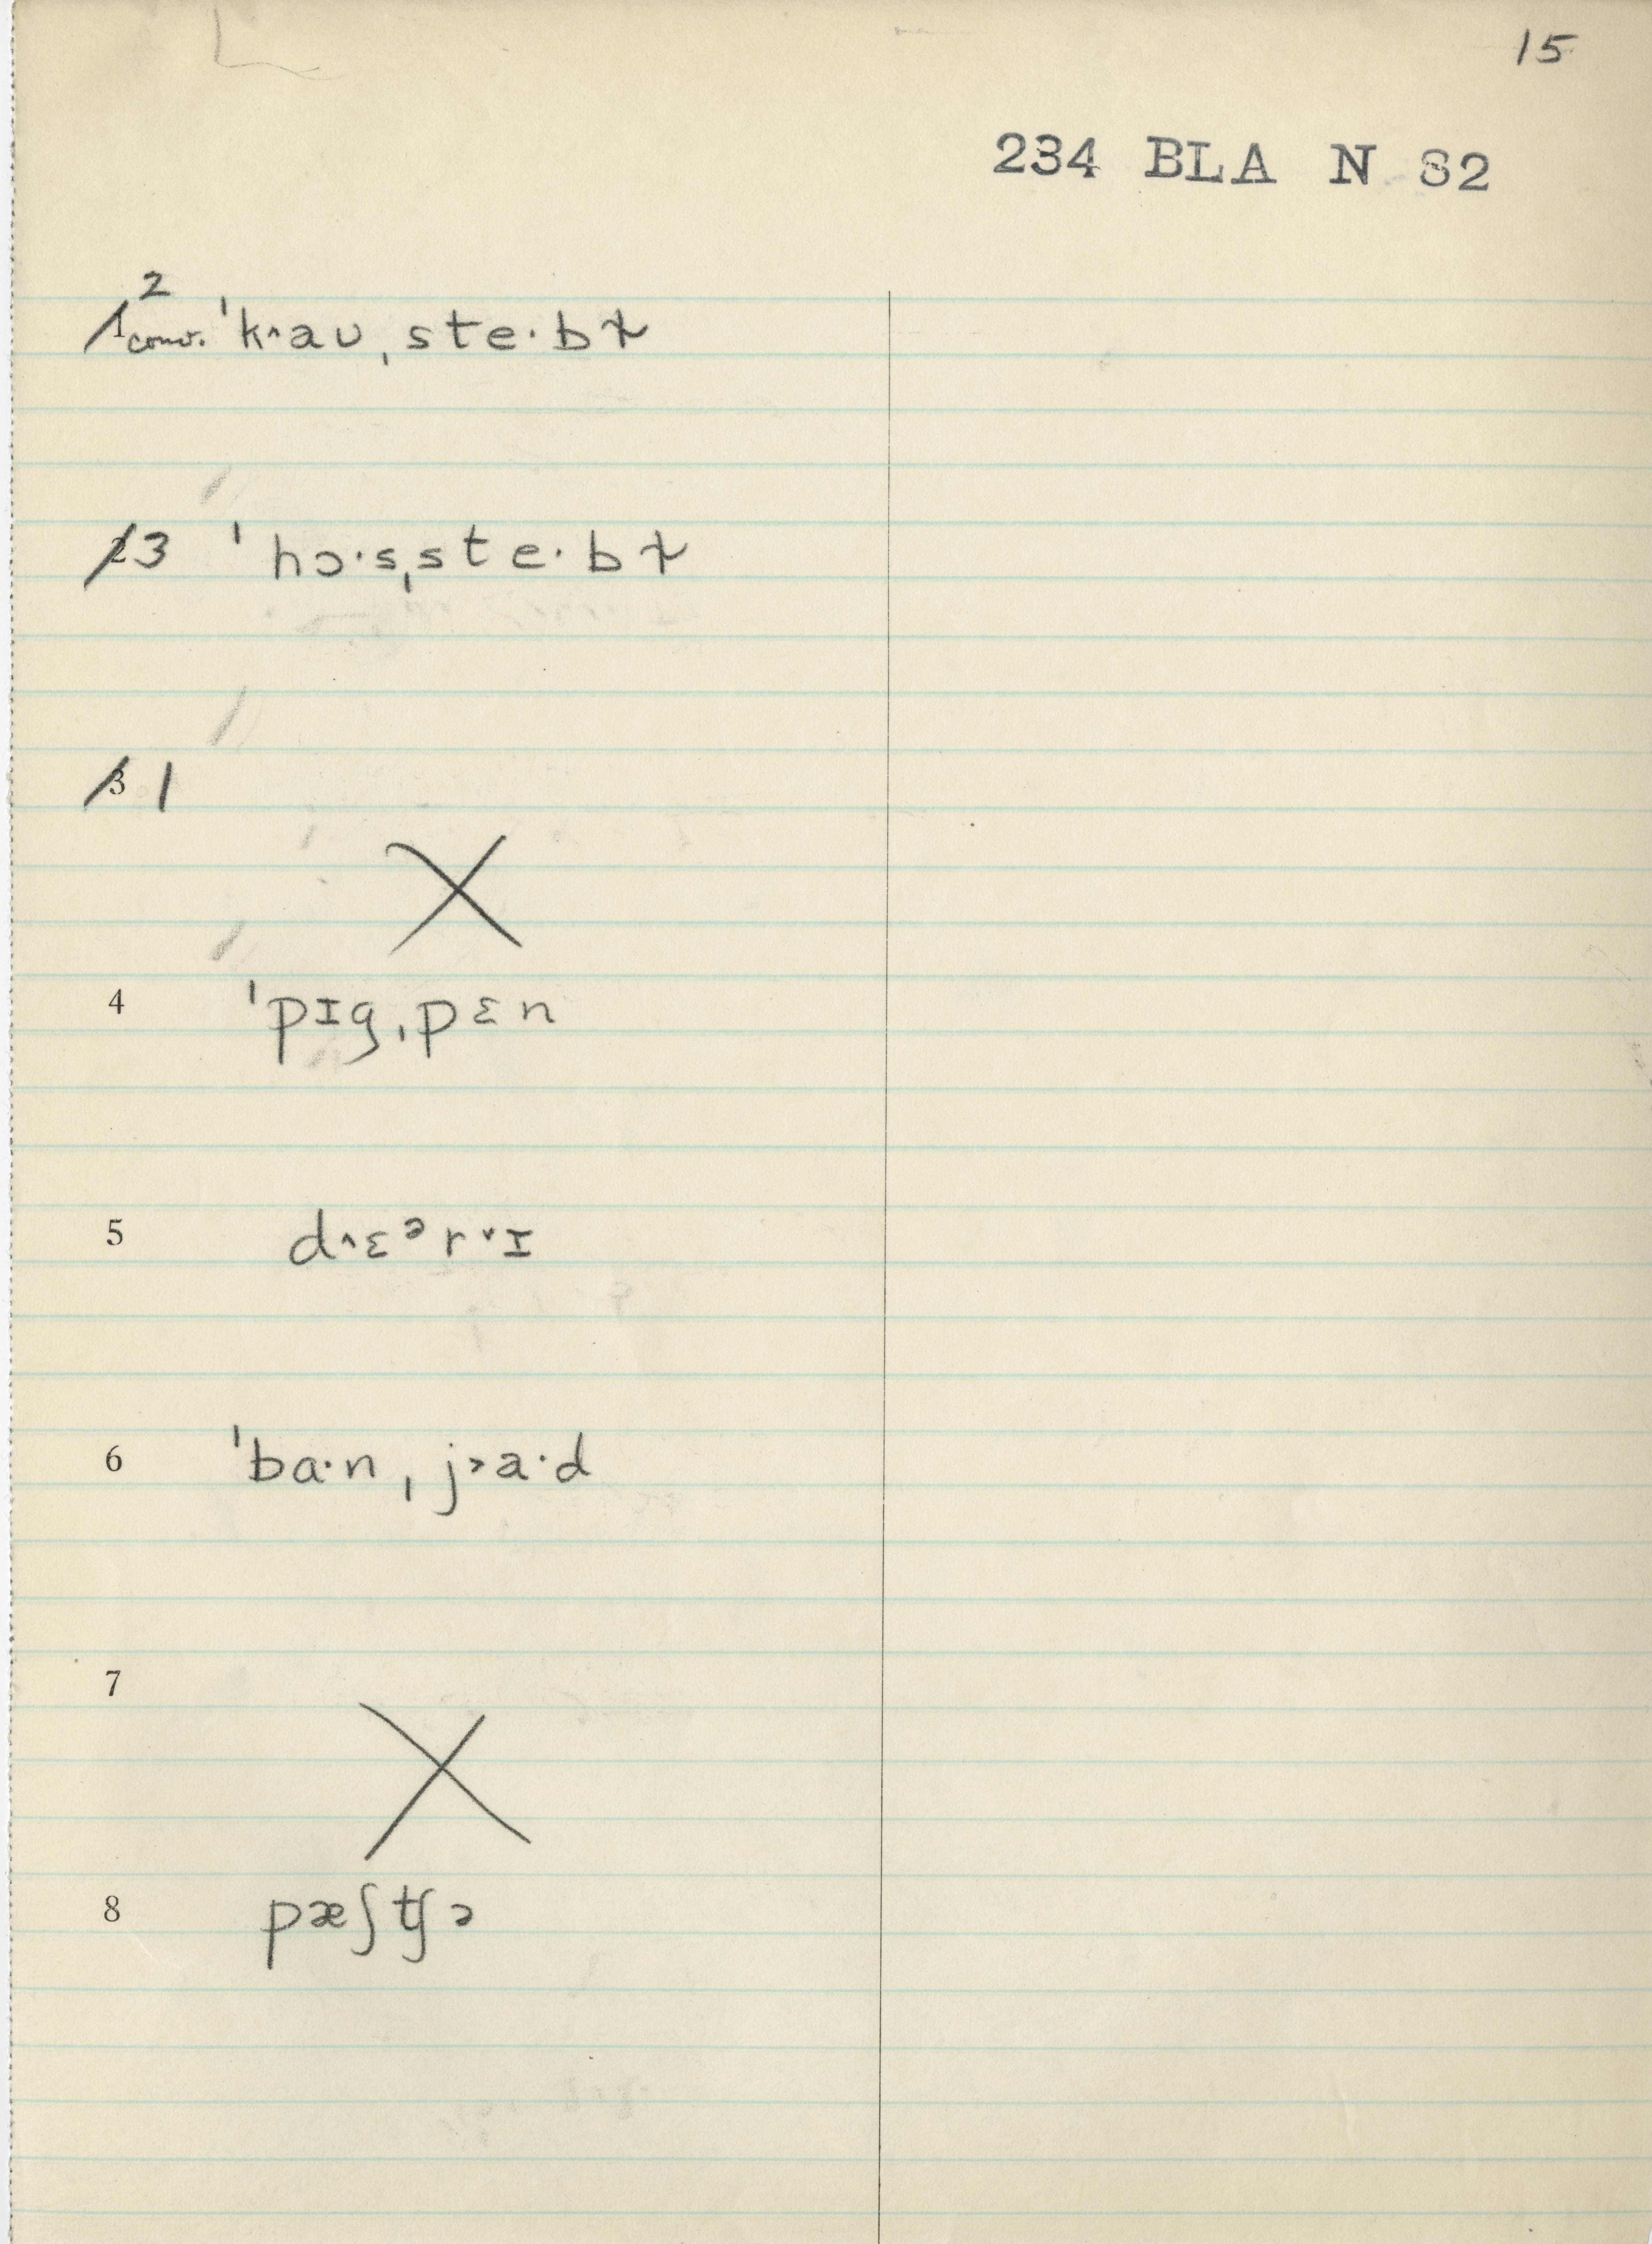 15
234 BLA N 82
2
1 conv. ˈk˄aʊˌste·bɫ
2 3 ˈhɔ·sˌste·bɫ
3 1
4 ˈpɪgˌpɛn
5 d˄ɛᵊr˅ɪ
6 ˈba·nˌj˃a·d
7
8 pæʃtʃə